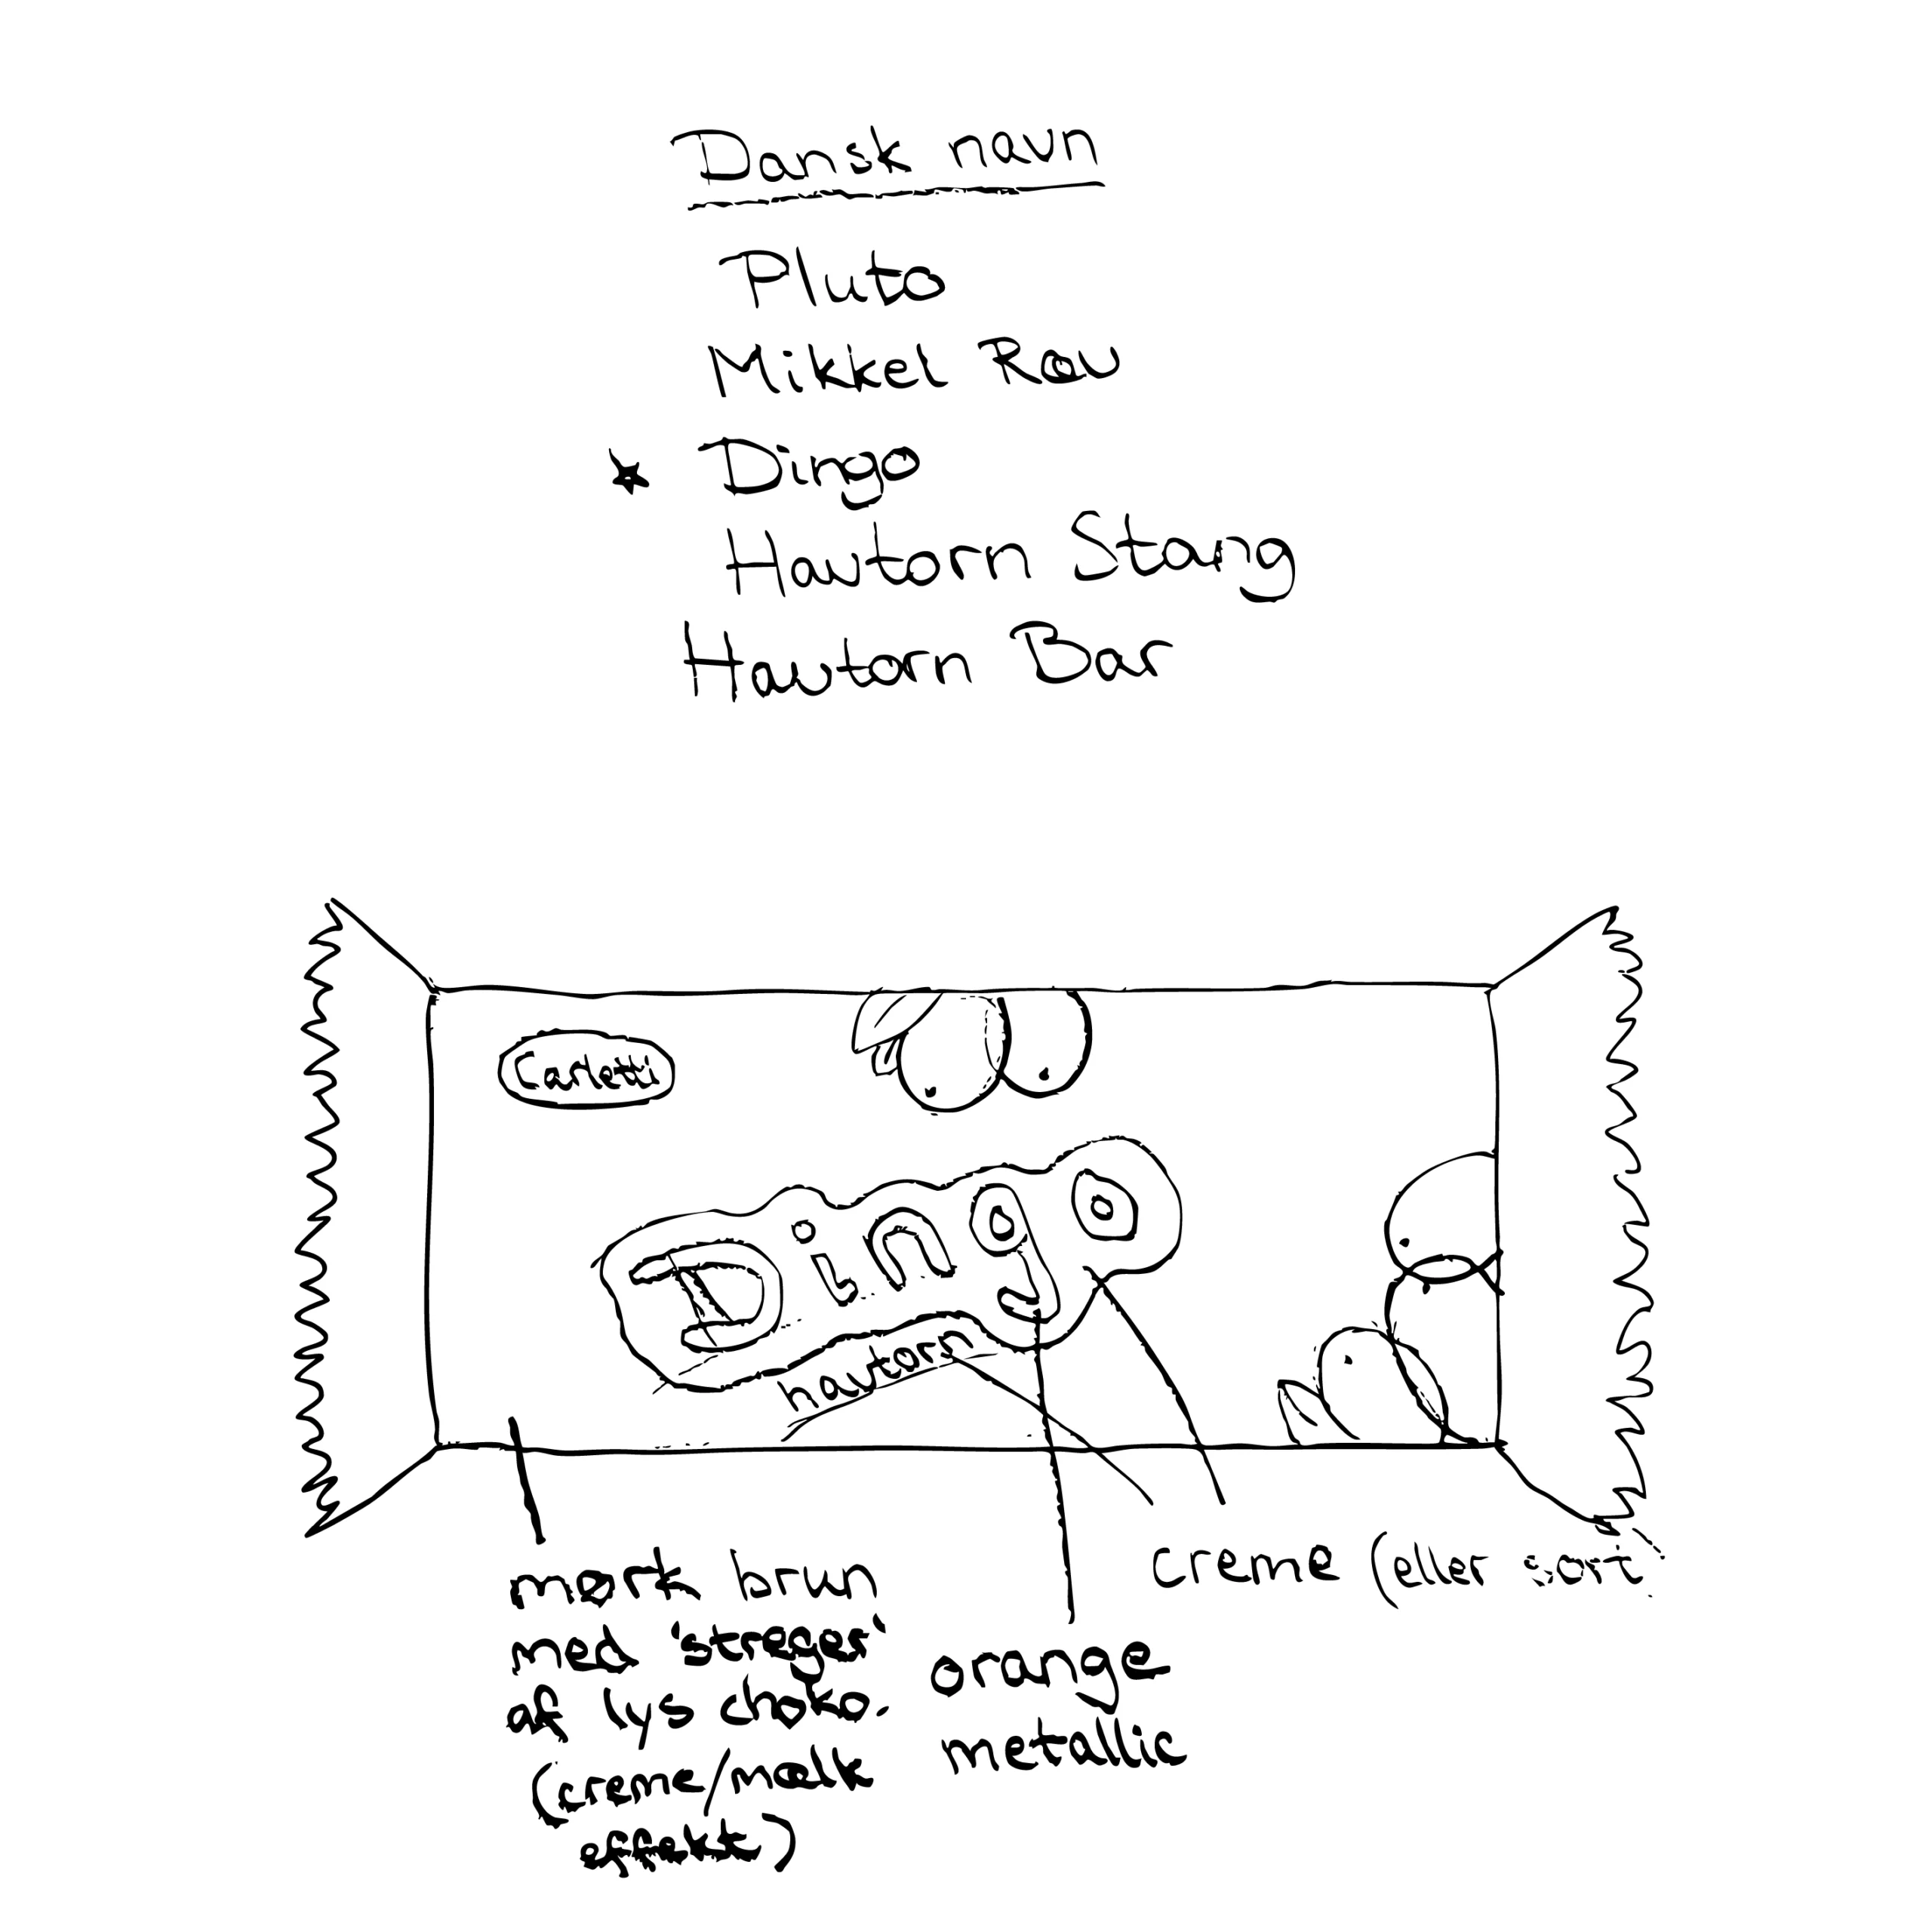 Dansk navn
Pluto
Mikkel Rav
Dingo
Havtorn Stang
Havtorn Bar
Dingo
havtorn
mørk brun
med "streger"
af lys choko.
(creme/mælk
effekt)
orange
metallic
Creme (eller